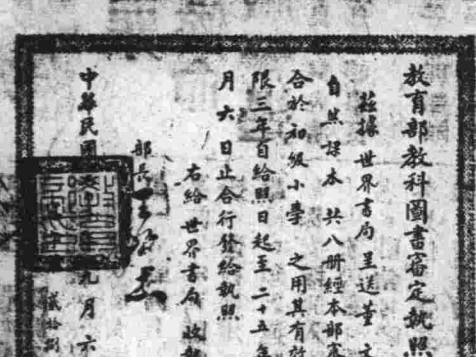 教育部教科圖書審定執照
茲據世界書局呈送董文
自然課本 共八册經本部審
合於初級小學 之用其有效
限三年自給照日起至二十五年
月六日止合行發給執照
右給世界書局收執
部長王
中華民國 九月六